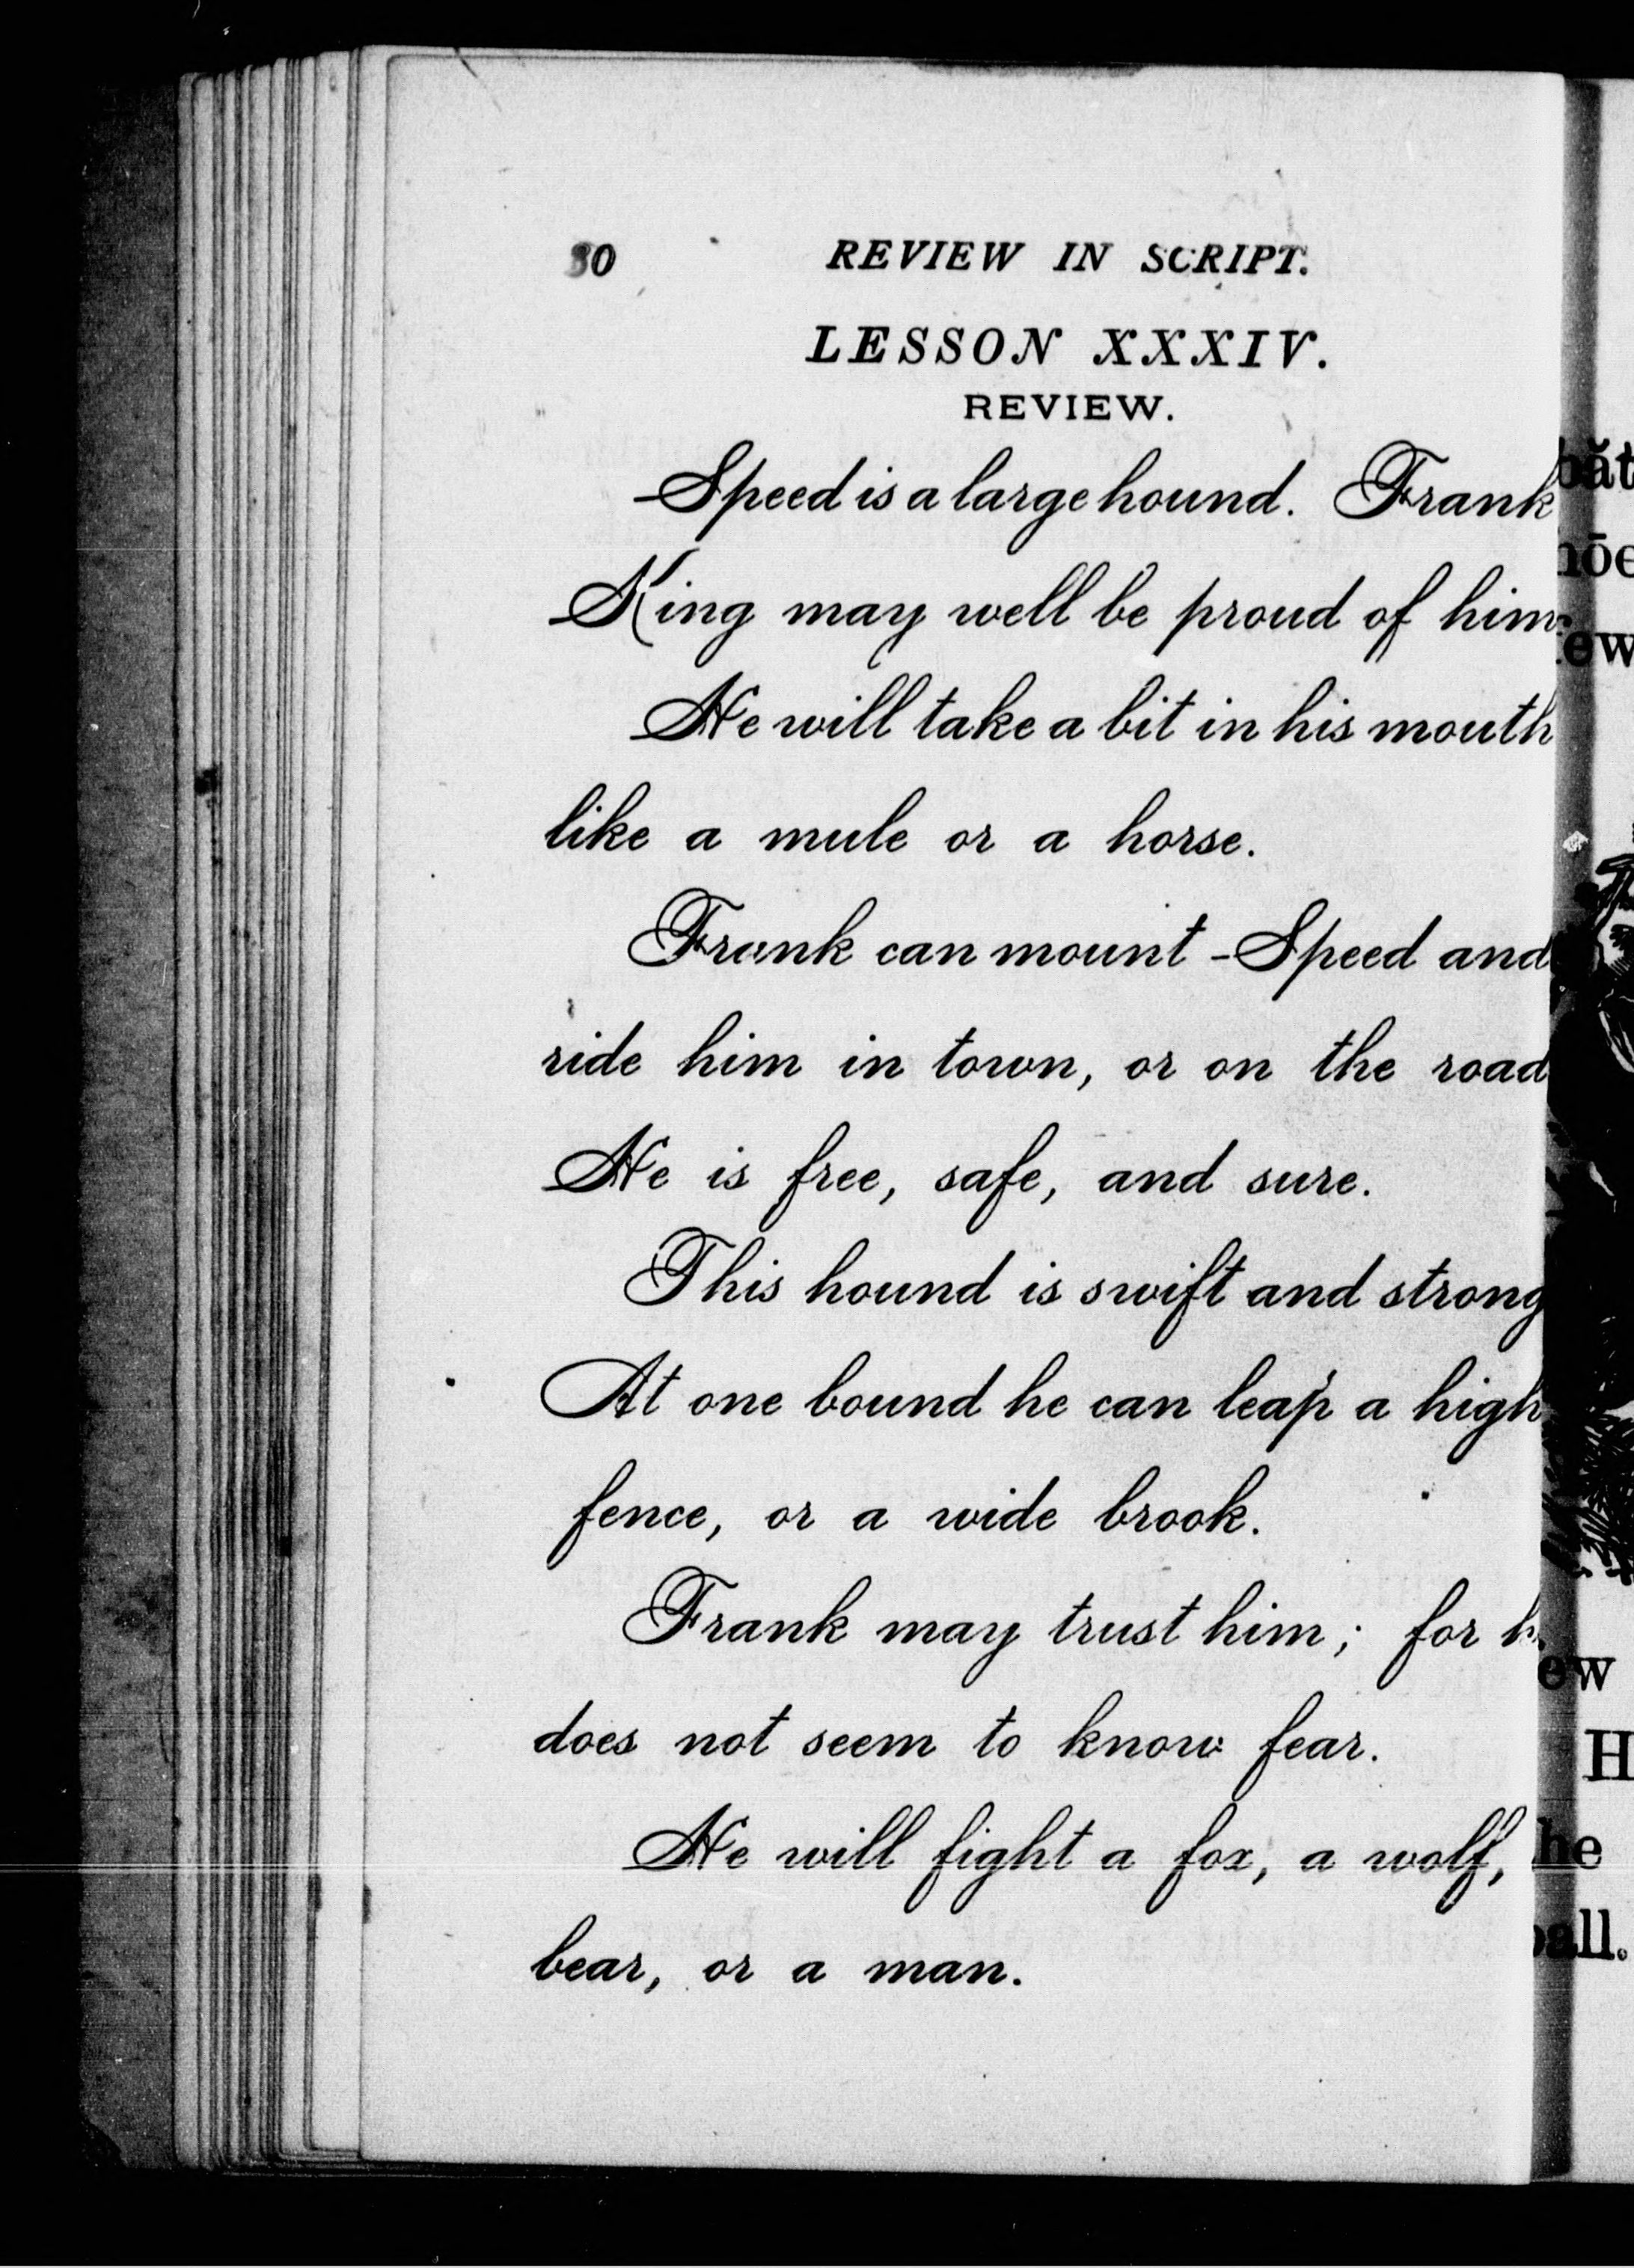 80 REVIEW IN SCRIPT.
LESSON XXXIV.
REVIEW.
Speed is a large hound. Frank
King may well be proud of him.
He will take a bit in his mouth
like a mule or a horse.
Frank can mount Speed and
ride him in town, or on the road
He is free, safe, and sure.
This hound is swift and strong
At one bound he can leap a high
fence, or a wide brook.
Frank may trust him; for
does not seem to know fear.
He will fight a fox, a wolf,
bear, or a man.
ew
H
he
all.